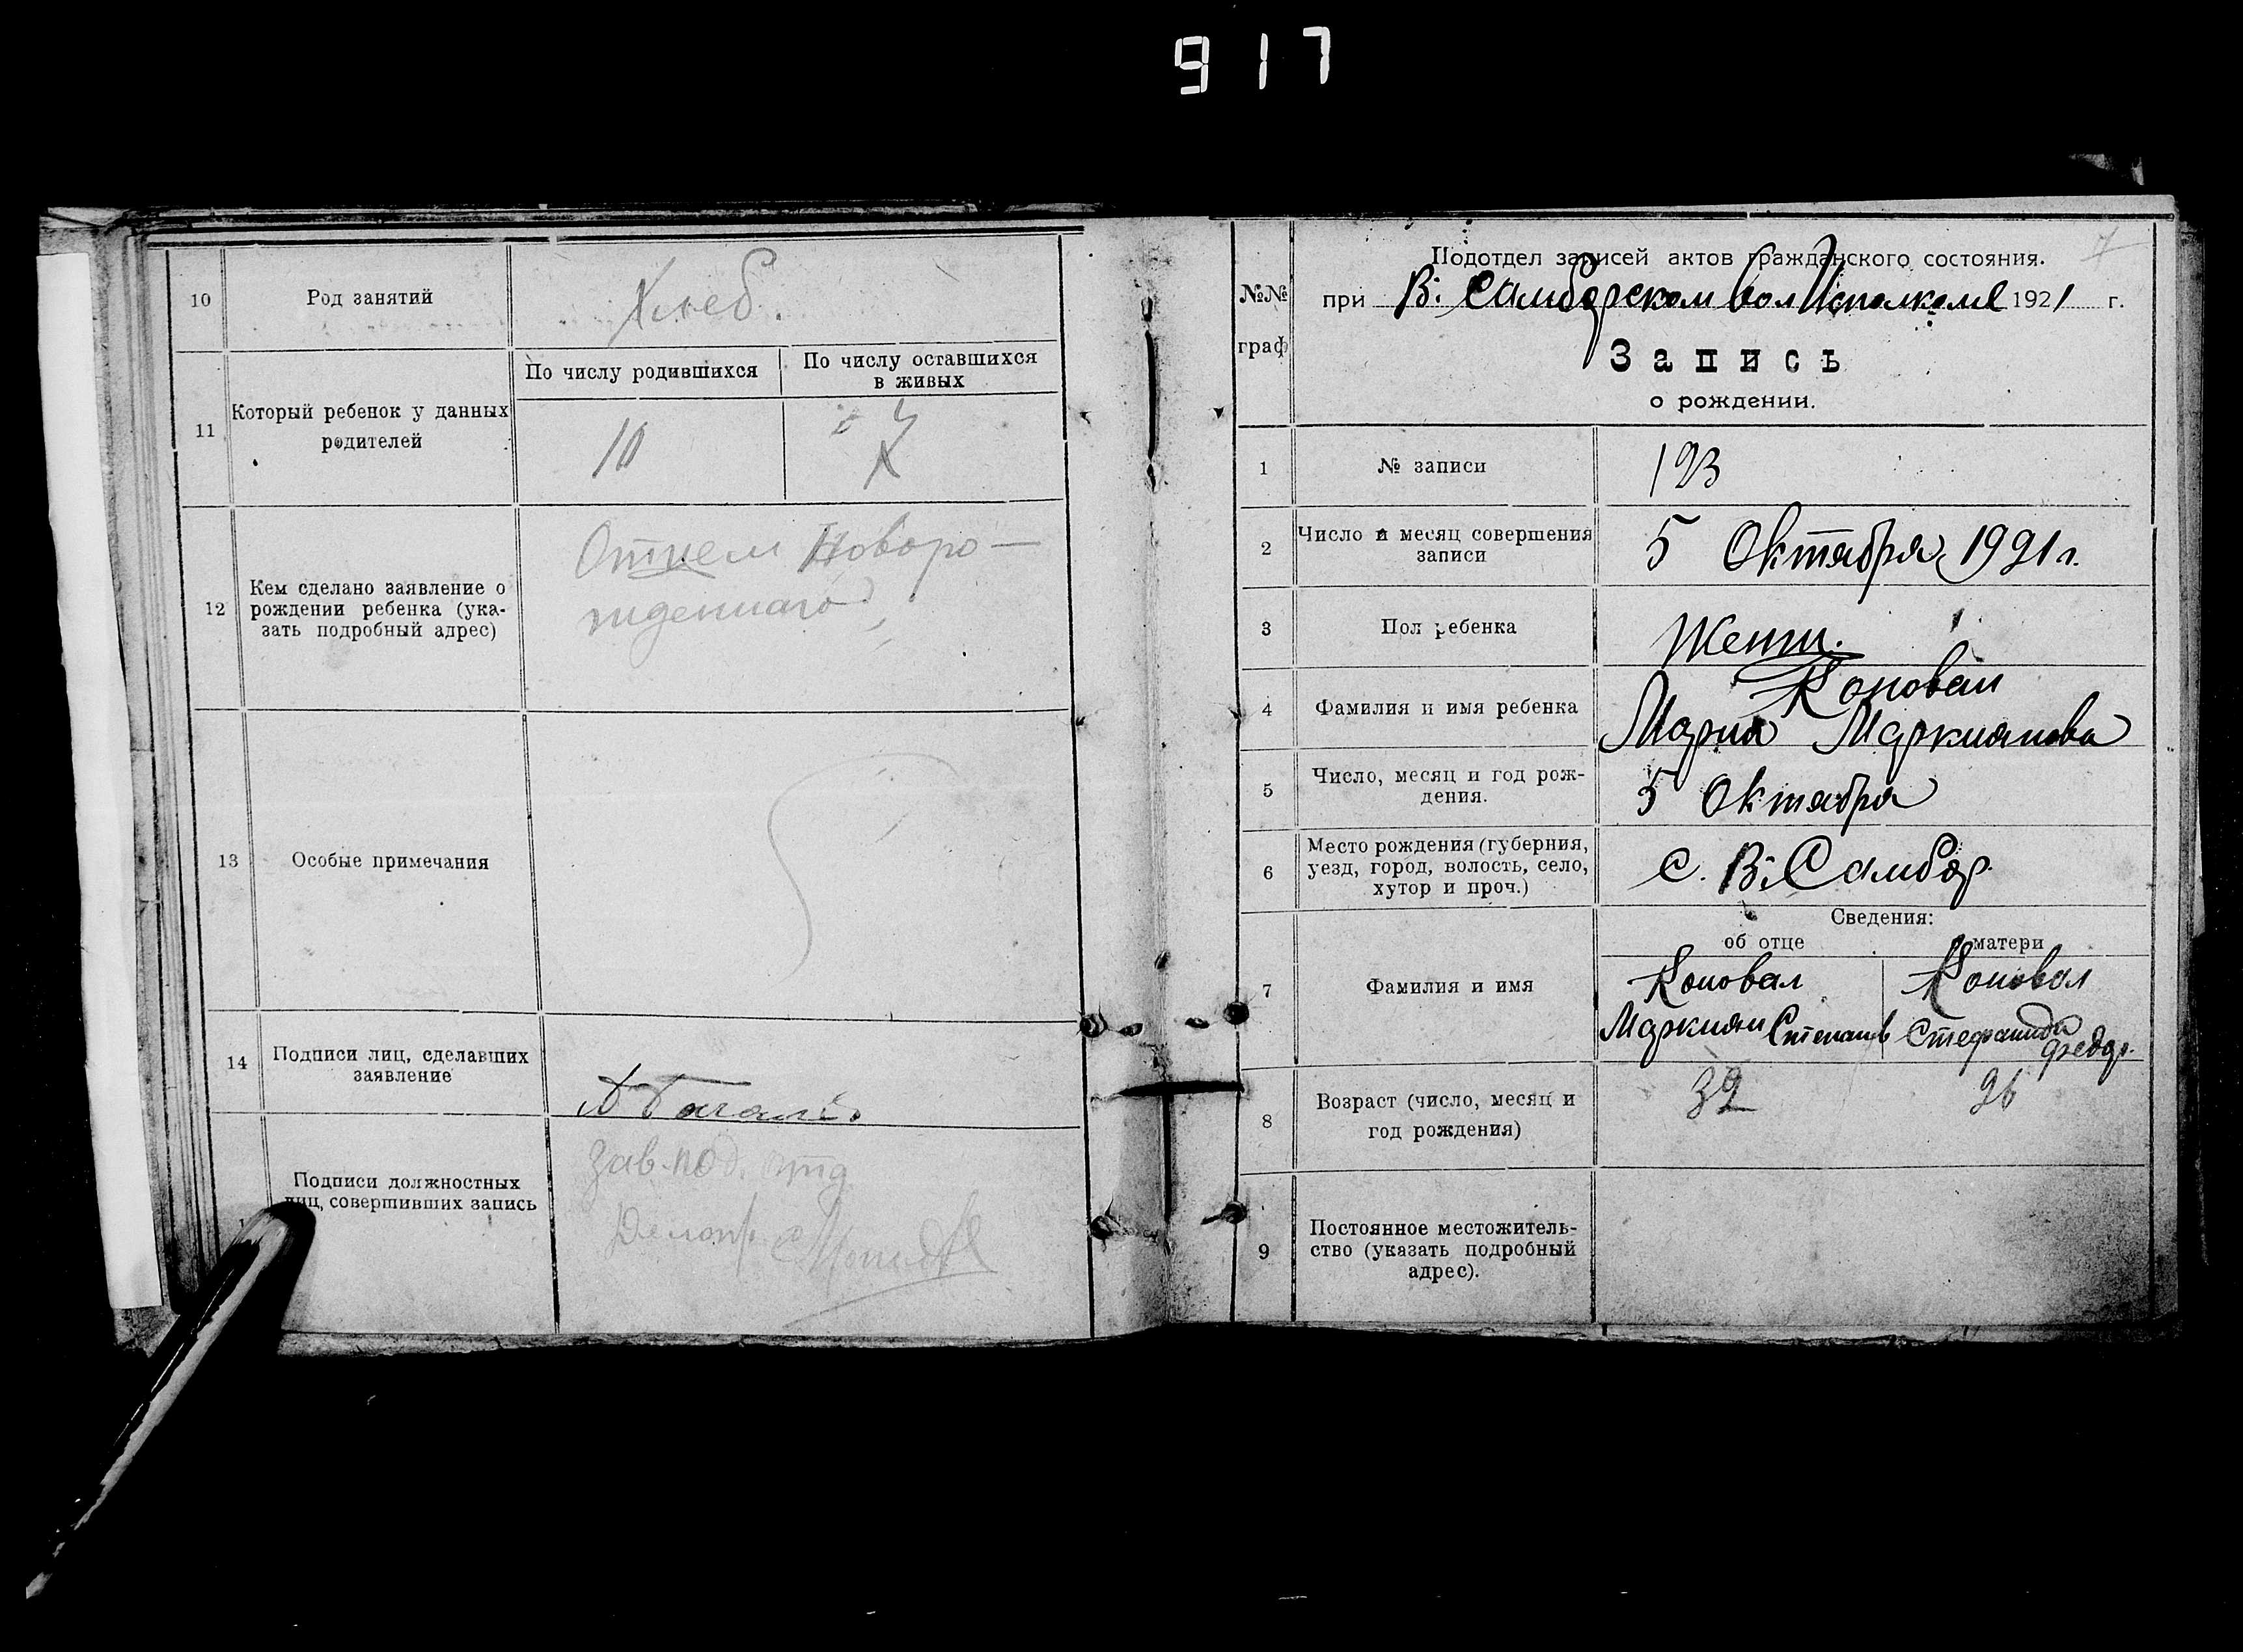 917
10
Род занятий
Хлеб.
11
Который ребенок у данных
родителей
По числу родившихся
По числу оставшихся
в живых
10
12
Кем сделано заявление о
рождении ребенка (ука-
зать подробный адрес)
Отцем Новоро-
жденнаго
13
Особые примечания
14
Подписи лиц, сделавших
заявление
Подписи должностных
лиц, совершивших запись
Зав. под. отд
Делопр.
7
№№
граф
Подотдел записей актов гражданского состояния.
при В. Самборском вол Исполкоме 1921 г.
Запись
о рождении.
1
№ записи
123
2
Число и месяц совершения
записи
5 Октября 1921 г.
3
Пол ребенка
Женш.
4
Фамилия и имя ребенка
Коновал
Мария Маркианова
5
Число, месяц и год рож-
дения.
5 Октября
6
Место рождения (губерния,
уезд, город, волость, село,
хутор и проч.)
с. В. Самбор.
Сведения:
об отце
матери
7
Фамилия и имя
Коновал
Маркиян Степанов
Коновал
Стефанида
Федор.
8
Возраст (число, месяц и
год рождения)
32
26
9
Постоянное местожитель-
ство (указать подробный
адрес).